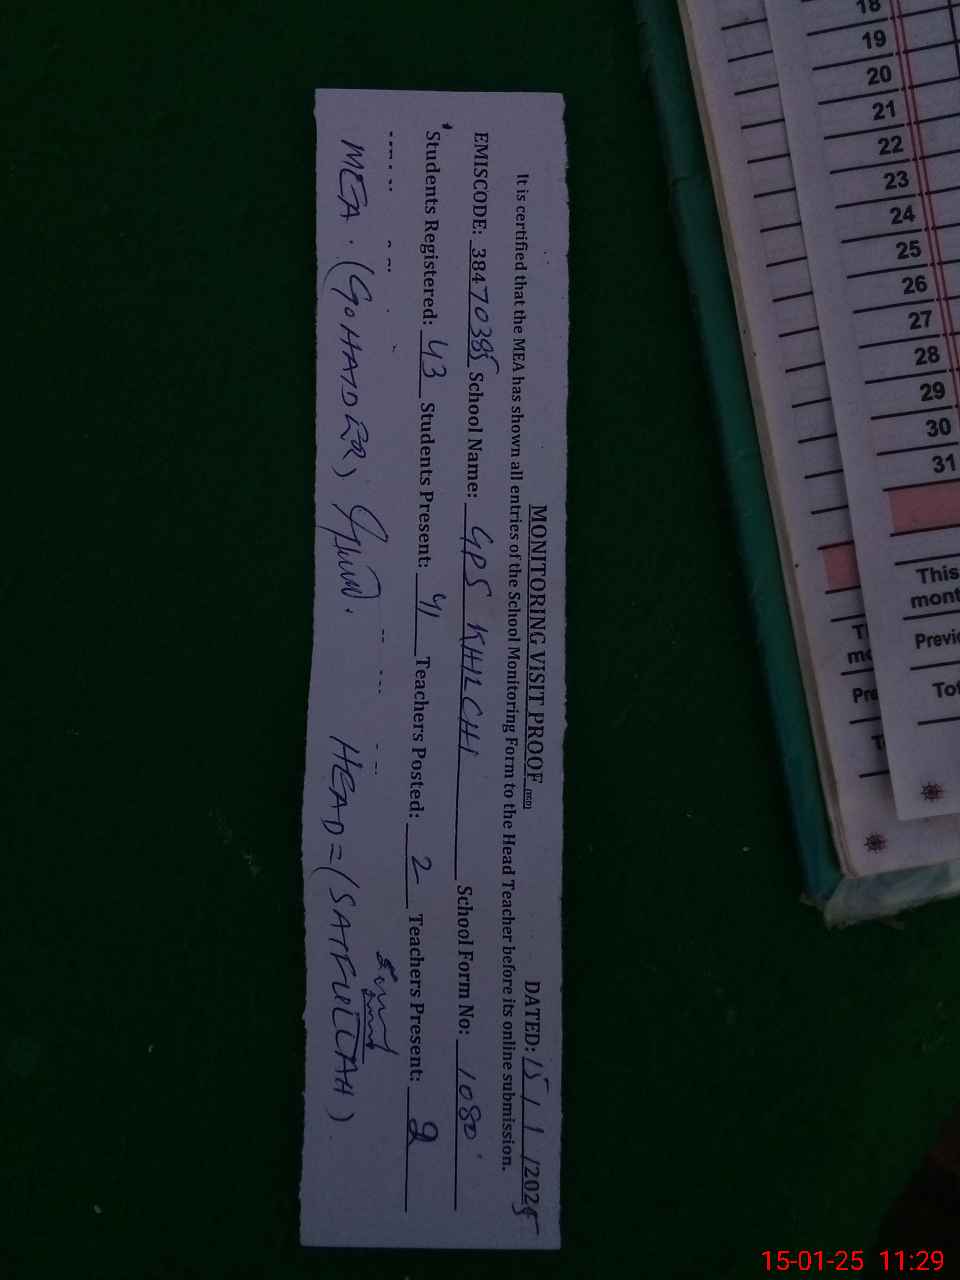 MONITORING VISIT PROOF DATED: 15/1/2025
It is certified that the MEA has shown all entries of the School Monitoring Form to the Head Teacher before its online submission.
EMISCODE: 38470385 School Name: GPS KHILCHI School Form No: 1080
Students Registered: 43 Students Present: 41 Teachers Posted: 2 Teachers Present: 2
MEA. (GOHAIDER) HEAD = (SAIFULLAH)
18
19
20
21
22
23
24
25
26
27
28
29
30
31
This
mont
Previ
Tot
T
mo
Pre
T
15-01-25 11:29